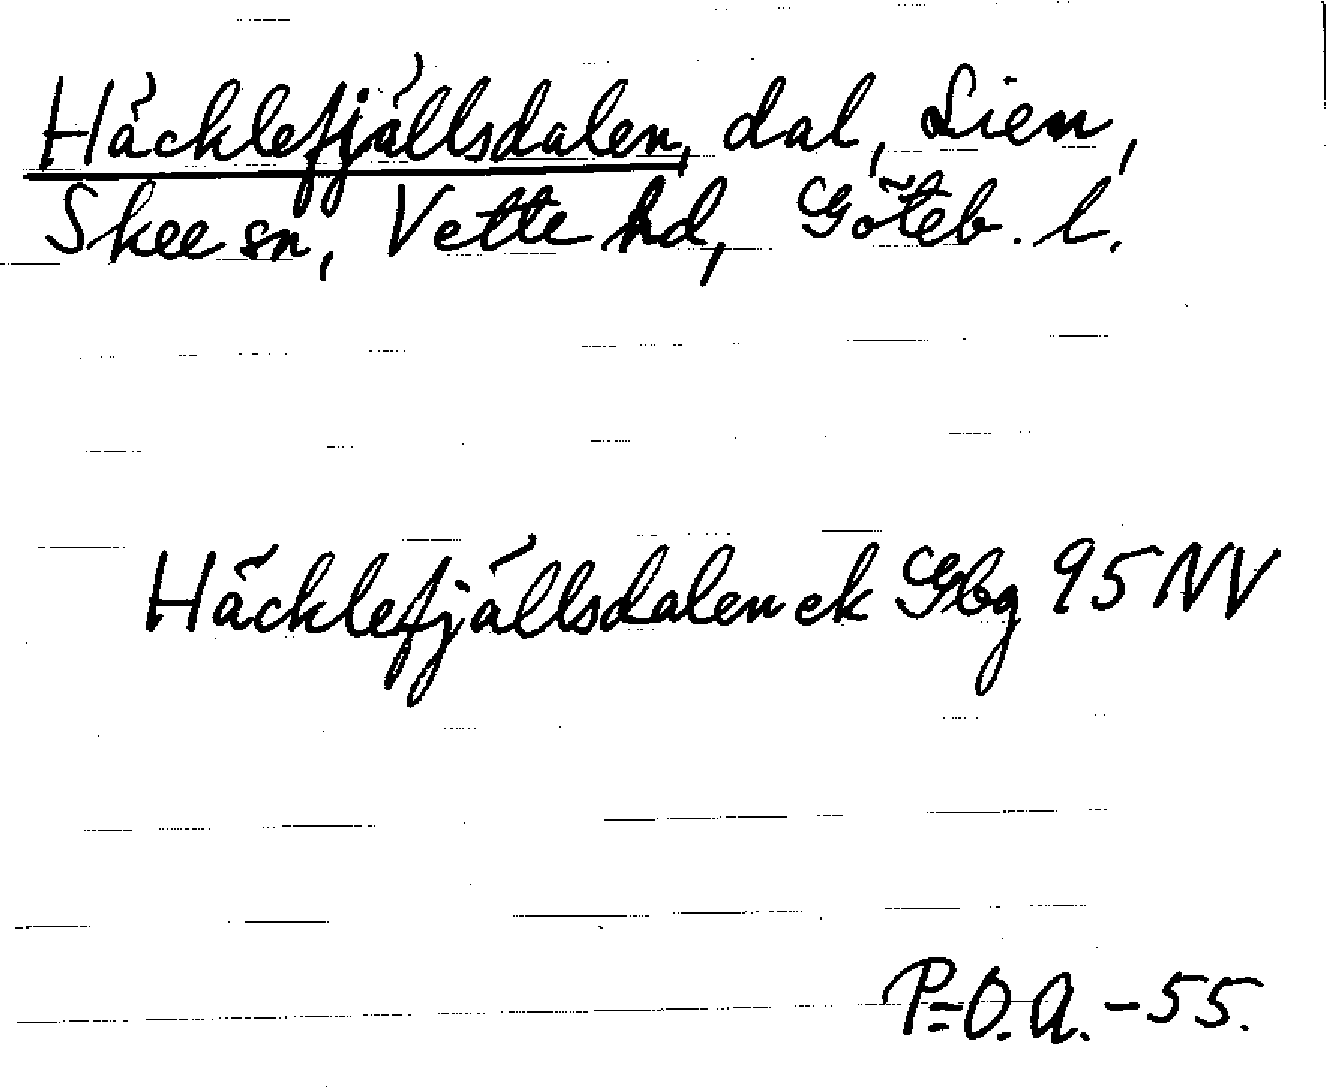 Häcklefjällsdalen, dal, Lien,
Skee sn, Vette hd, Göteb. l.
Häcklefjällsdalen ek Gbg 95 NV
P-O. A. -55.